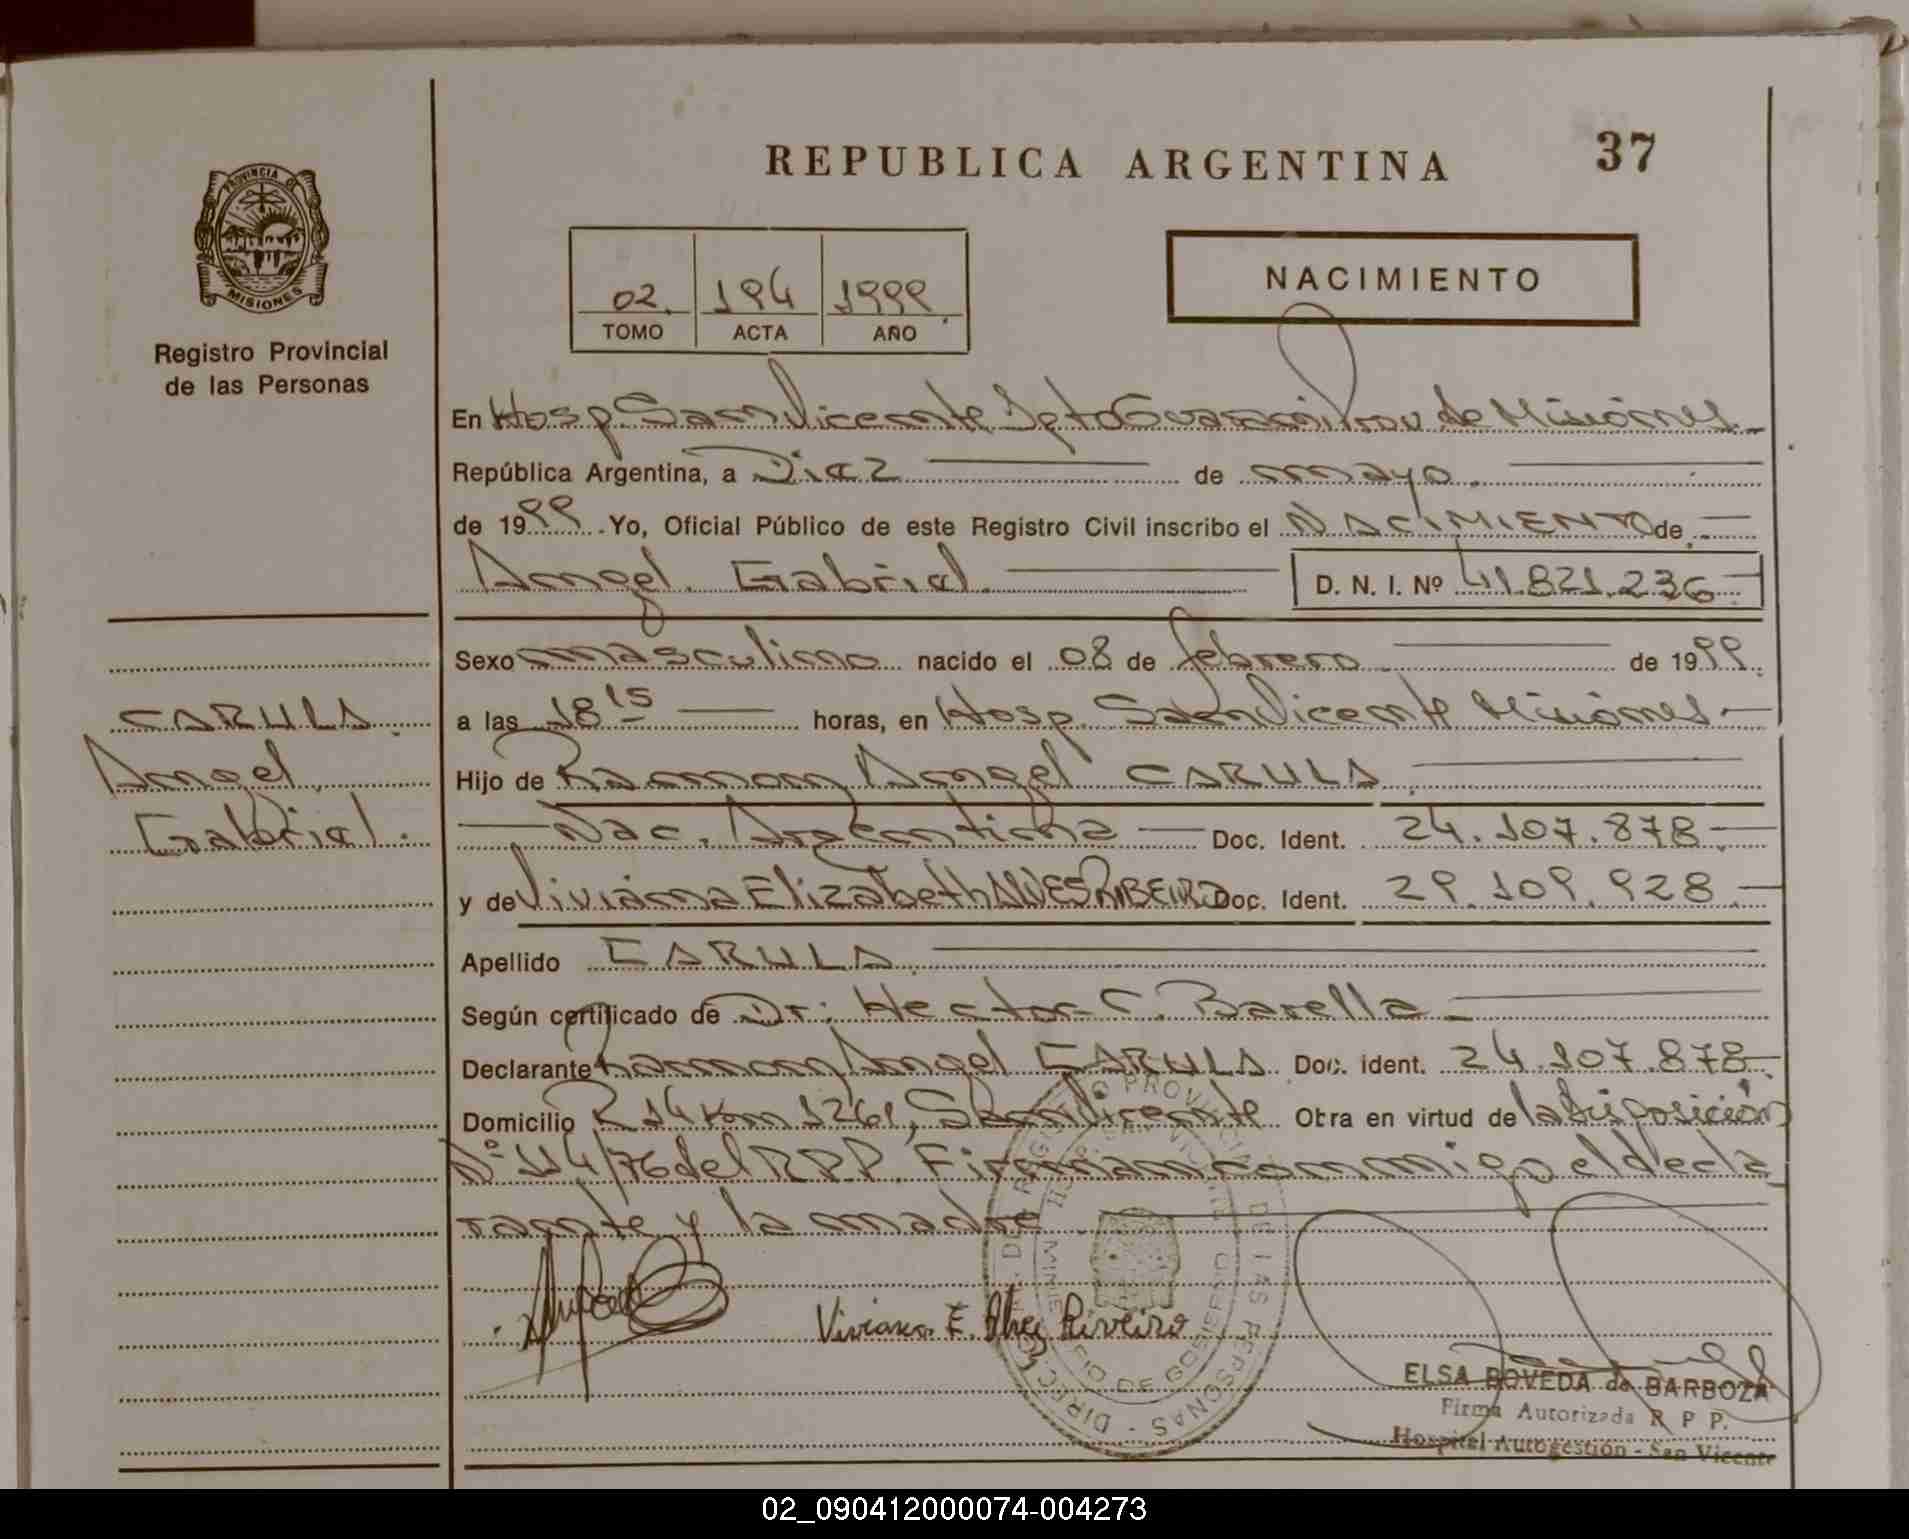 REPUBLICA ARGENTINA
37
PROVINCIA DE
MISIONES
Registro Provincial
de las Personas
02. 194 1999.
TOMO ACTA AÑO
NACIMIENTO
En Hosp. San Vicente Dpto Guaraní Prov de Misiones
República Argentina, a Diez de mayo.
de 1999 Yo, Oficial Público de este Registro Civil inscribo el NACIMIENTO de
Angel Gabriel D. N. I. Nº 41.821.236
Sexo masculino nacido el 08 de febrero de 1999
a las 18 15 horas, en Hosp. San Vicente Misiones
Hijo de Ramon Angel CARULA
Nac. Argentina Doc. Ident. 24.107.878
y de Viviana Elizabeth ALVES RIBEIRO Doc. Ident. 29.109.928
Apellido CARULA
Según certificado de Dr. Hector C. Barella
Declarante Ramon Angel CARULA Doc. ident. 24.107.878
Domicilio R 14 Km 1261, San Vicente Obra en virtud de la disposición
Nº 114/76 del RPP. Firman conmigo el decla
rante y la madre
CARULA
Angel
Gabriel.
Viviana E. Riveiro
ELSA BOVEDA de BARBOZA
Firma Autorizada R P P.
Hospital Autogestión - San Vicente
02_090412000074-004273